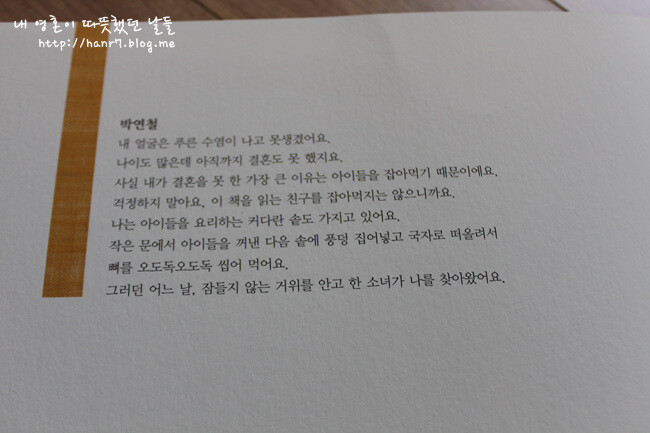 내 영혼이 따뜻했던 날들
http://hanr7.blog.me
박연철
내 얼굴은 푸른 수염이 나고 못생겼어요.
나이도 많은데 아직까지 결혼도 못 했지요.
사실 내가 결혼을 못 한 가장 큰 이유는 아이들을 잡아먹기 때문이에요.
걱정하지 말아요. 이 책을 읽는 친구를 잡아먹지는 않으니까요.
나는 아이들을 요리하는 커다란 솥도 가지고 있어요.
작은 문에서 아이들을 꺼낸 다음 솥에 풍덩 집어넣고 국자로 떠올려서
뼈를 오도독오도독 씹어 먹어요.
그러던 어느 날, 잠들지 않는 거위를 안고 한 소녀가 나를 찾아왔어요.